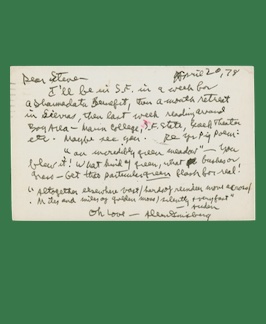 Dear Steve—
April 20, 78
I'll be in S.F. in a week for
a Dharmadata Benefit, then a month retreat
in Sierras, then last week reading around
Bay Area — Marin College, S.F. State, Theater
etc. Maybe see you. Re yr Pig Poem:
"an incredibly green meadow" — You
blew it! What kind of green, what bushes or
grass — Get that particular green flash for real!
"Altogether elsewhere vast / herds of reindeer move across /
Miles and miles of golden moss / silently & very fast"
— Auden
Oh Love — Allen Ginsberg